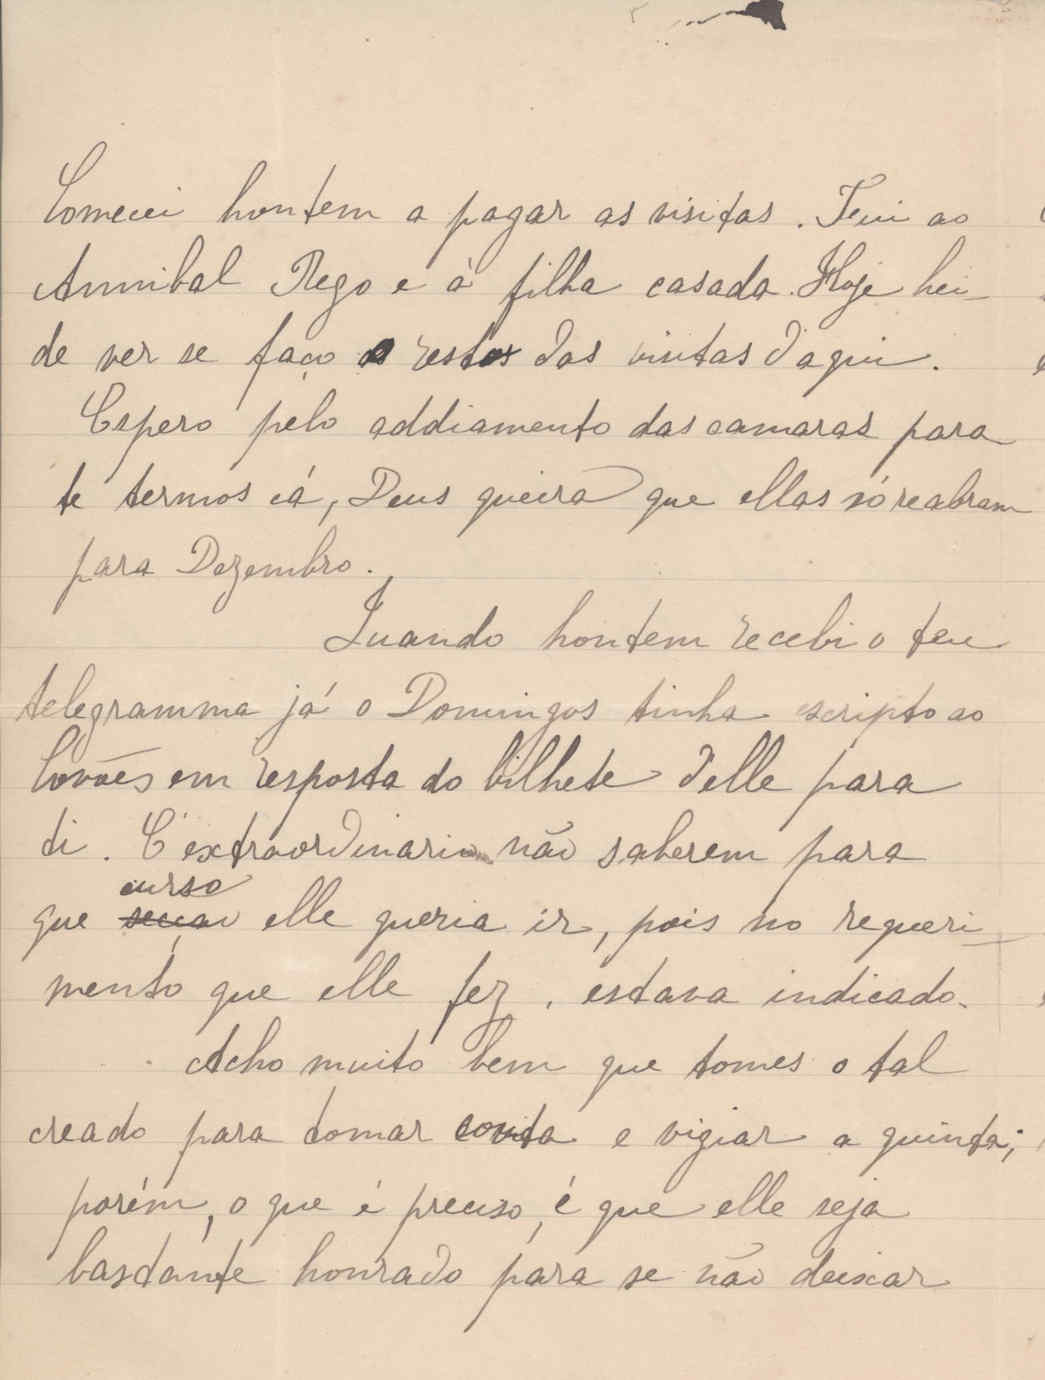 Comecei hontem a pagar as visitas. Fui ao
Annibal Rego e á filha casada. Hoje hei-
de ver se faço o resto das visitas d'aqui.
Espero pelo addiamento das camaras para
te termos cá, Deus queira que ellas só reabram
para Dezembro.
Quando hontem recebi o teu
telegramma já o Domingos tinha escripto ao
Covões em resposta do bilhete d'elle para
ti. E' extraordinario não saberem para
curso
que secção elle queria ir, pois no requeri-
mento que elle fez, estava indicado.
Acho muito bem que tomes o tal
creado para tomar conta e vigiar a quinta;
porém, o que é preciso, é que elle seja
bastante honrado para se não deixar